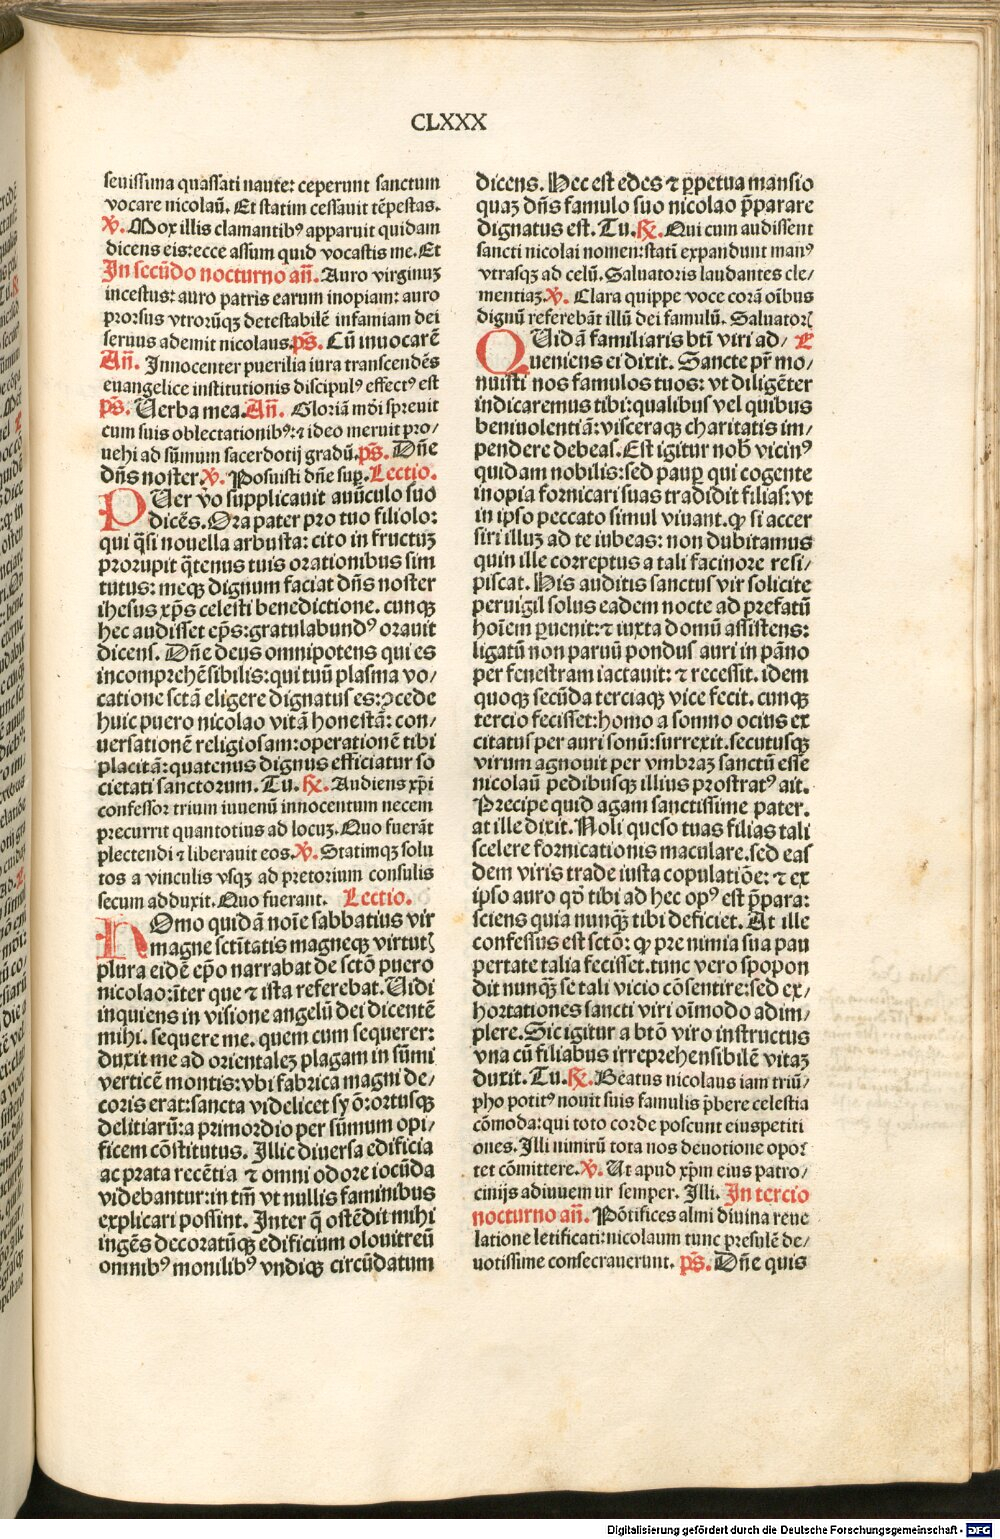 CLXXX
seuissima quassati naute: ceperunt sanctum
vocare nicolaū. Et statim cessauit tēpestas.
℣. Mox illis clamantibꝰ apparuit quidam
dicens eis: ecce assum quid vocastis me. Et
In secūdo nocturno an̄. Auro virginuꝫ
incestus: auro patris earum inopiam: auro
prorsus vtrorūqꝫ detestabilē infamiam dei
seruus ademit nicolaus. ps̄. Cū inuocarē
An̄. Innocenter puerilia iura transcendēs
euangelice institutionis discipulꝰ effectꝰ est
ps̄. Uerba mea. An̄. Gloriā mōi spreuit
cum suis oblectationibꝰ: ⁊ ideo meruit pro/
uehi ad sūmum sacerdotij gradū. ps̄. Dn̄e
dn̄s noster. ℣. Posuisti dn̄e suꝑ. Lectio.
PUer v̄o supplicauit auūculo suo
dicēs. Ora pater pro tuo filiolo:
qui q̄si nouella arbusta: cito in fructuꝫ
prorupit q̄tenus tuis orationibus sim
tutus: meqꝫ dignum faciat dn̄s noster
ihesus xp̄s celesti benedictione. cunqꝫ
hec audisset ep̄s: gratulabundꝰ orauit
dicens. Dn̄e deus omnipotens qui es
incomprehēsibilis: qui tuū plasma vo/
catione sctā eligere dignatus es: ꝯcede
huic puero nicolao vitā honestā: con/
uersationē religiosam: operationē tibi
placitā: quatenus dignus efficiatur so
cietati sanctorum. Tu. ℟. Audiens xp̄i
confessor trium iuuenū innocentum necem
precurrit quantotius ad locuꝫ. Quo fuerāt
plectendi ⁊ liberauit eos. ℣. Statimqꝫ solu
tos a vinculis vsqꝫ ad pretorium consulis
secum adduxit. Quo fuerant. Lectio.
HOmo quidā noīe sabbatius vir
magne sctītatis magneqꝫ virtutꝭ
plura eidē ep̄o narrabat de sctō puero
nicolao: īter que ⁊ ista referebat. Uidi
inquiens in visione angelū dei dicentē
mihi. sequere me. quem cum sequerer:
duxit me ad orientaleꝫ plagam in sūmi
verticē montis: vbi fabrica magni de/
coris erat: sancta videlicet syō: ortusqꝫ
delitiarū: a primordio per sūmum opi/
ficem cōstitutus. Illic diuersa edificia
ac prata recētia ⁊ omni odore iocūda
videbantur: in tm̄ vt nullis faminibus
explicari possint. Inter q̄ ostēdit mihi
ingēs decoratūqꝫ edificium olouitreū
omnibꝰ monilibꝰ vndiqꝫ circūdatum
dicens. Hec est edes ⁊ ꝑpetua mansio
quaꝫ dn̄s famulo suo nicolao p̄parare
dignatus est. Tu. ℟. Qui cum audissent
sancti nicolai nomen: statī expandunt manꝰ
vtrasqꝫ ad celū. Saluatoris laudantes cle/
mentiaꝫ. ℣. Clara quippe voce corā oībus
dignū referebāt illū dei famulū. Saluatorꝭ
QUidā familiaris btī viri ad/ L
ueniens ei dixit. Sancte pr̄ mo/
nuisti nos famulos tuos: vt diligēter
indicaremus tibi: qualibus vel quibus
beniuolentiā: visceraqꝫ charitatis im/
pendere debeas. Est igitur nob̄ vicinꝰ
quidam nobilis: sed pauꝑ qui cogente
inopia fornicari suas tradidit filias: vt
in ipso peccato simul viuant. ꝙ si accer
siri illuꝫ ad te iubeas: non dubitamus
quin ille correptus a tali facinore resi/
piscat. His auditis sanctus vir solicite
peruigil solus eadem nocte ad prefatū
hoīem ꝑuenit: ⁊ iuxta domū assistens:
ligatū non paruū pondus auri in pāno
per fenestram iactauit: ⁊ recessit. idem
quoqꝫ secūda terciaqꝫ vice fecit. cunqꝫ
tercio fecisset: homo a somno ocius ex
citatus per auri sonū: surrexit. secutusqꝫ
virum agnouit per vmbraꝫ sanctū esse
nicolaū pedibusqꝫ illius prostratꝰ ait.
Precipe quid agam sanctissime pater.
at ille dixit. Noli queso tuas filias tali
scelere fornicationis maculare. sed eas
dem viris trade iusta copulatiōe: ⁊ ex
ipso auro qd̄ tibi ad hec opꝰ est p̄para:
sciens quia nunqꝫ tibi deficiet. At ille
confessus est sctō: ꝙ pre nimia sua pau
pertate talia fecisset. tunc vero spopon
dit nunqꝫ se tali vicio cōsentire: sed ex/
hortationes sancti viri oīmodo adim/
plere. Sic igitur a btō viro instructus
vna cū filiabus irreprehensibilē vitaꝫ
duxit. Tu. ℟. Beatus nicolaus iam triū/
pho potitꝰ nouit suis famulis p̄bere celestia
cōmoda: qui toto corde poscunt eius petiti
ones. Illi nimirū tota nos deuotione opor
tet cōmittere. ℣. Ut apud xp̄m eius patro/
cinijs adiuuemur semper. Illi. In tercio
nocturno an̄. Pōtifices almi diuina reue
latione letificati: nicolaum tunc presulē de/
uotissime consecrauerunt. ps̄. Dn̄e quis
Digitalisierung gefördert durch die Deutsche Forschungsgemeinschaft - DFG